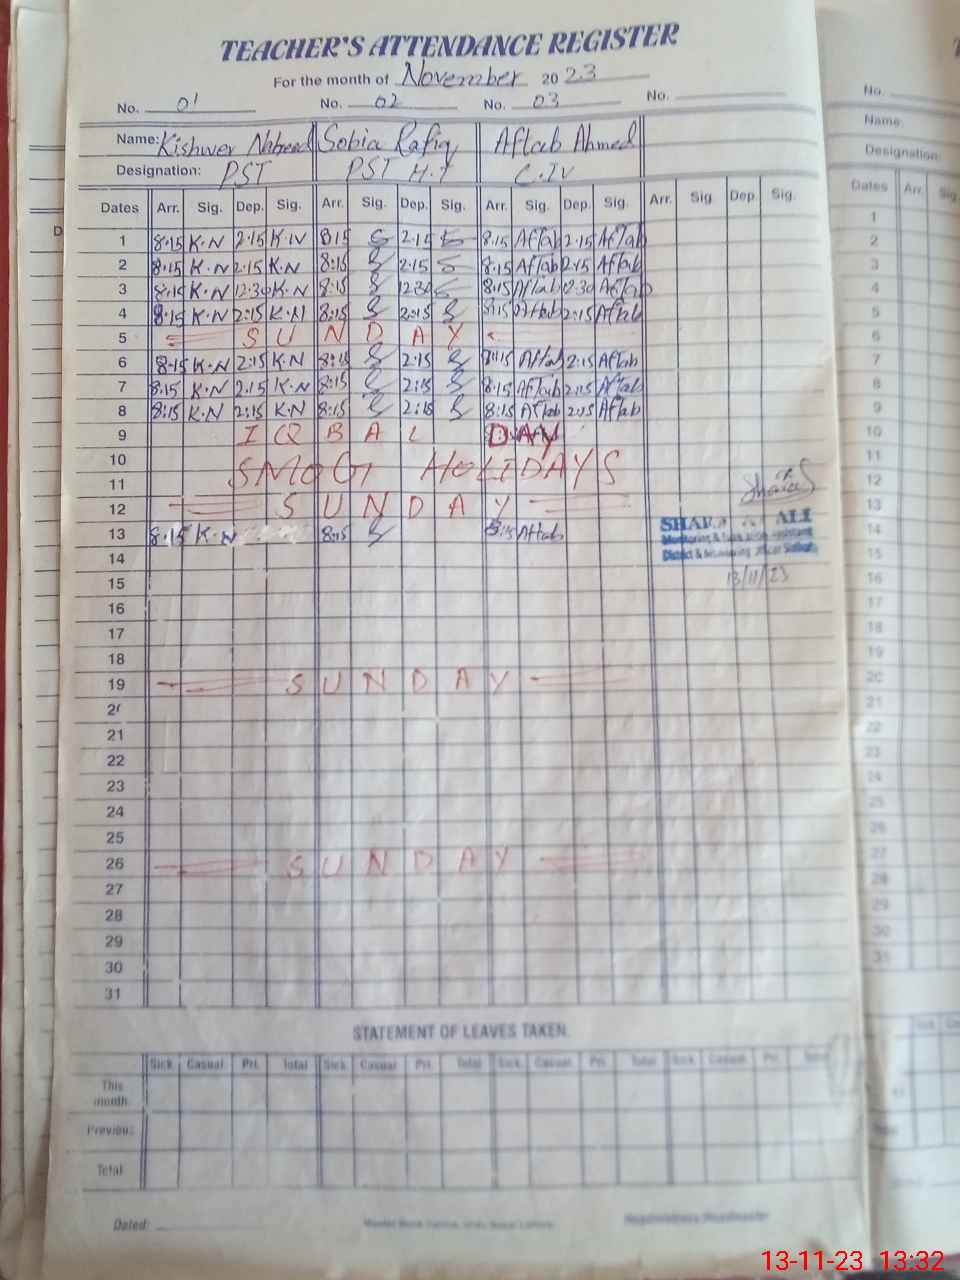 TEACHER'S ATTENDANCE REGISTER
For the month of November 2023
No. 01 No. 02 No. 03 No.
Name: Kishwer Sobia Rafiq Aftab Ahmed
Designation: PST PST H.T C.IV
Dates Arr. Sig. Dep. Sig. Arr. Sig. Dep. Sig. Arr. Sig. Dep. Sig. Arr. Sig. Dep. Sig.
1 8.15 K.N 2.15 K.N 8:15 2.15 8.15 Aftab 2.15 Aftab
2 8:15 K.N 2.15 K.N 8:15 2:15 8.15 Aftab 2.15 Aftab
3 8.15 K.N 12.30 K.N 8:15 12:30 8.15 Aftab 12.30 Aftab
4 8.15 K.N 2:15 K.N 8:15 2:15 8:15 Aftab 2:15 Aftab
5 SUNDAY
6 8.15 K.N 2:15 K.N 8:15 2:15 8:15 Aftab 2:15 Aftab
7 8.15 K.N 2.15 K.N 8:15 2:15 8.15 Aftab 2:15 Aftab
8 8:15 K.N 2:15 K.N 8:15 2:15 8:15 Aftab 2:15 Aftab
9 IQBAL DAY
10
SMOG HOLIDAYS
11
12 SUNDAY
13 8.15 K.N 8:15 8:15 Aftab
ALI
13/11/23
14
15
16
17
18
19 SUNDAY
21
22
23
24
25
26 SUNDAY
27
28
29
30
31
STATEMENT OF LEAVES TAKEN.
Sick Casual Pri. Total Sick Casual Pri. Total Sick Casual Pri. Total Sick Casual Pri.
This
month
Previous
Total
Dated:
No.
Name:
Designation:
Dates Arr. Sig.
1
2
3
4
5
6
7
8
9
10
11
12
13
14
15
16
17
18
19
20
21
22
23
24
25
26
27
28
29
30
31
13-11-23 13:32